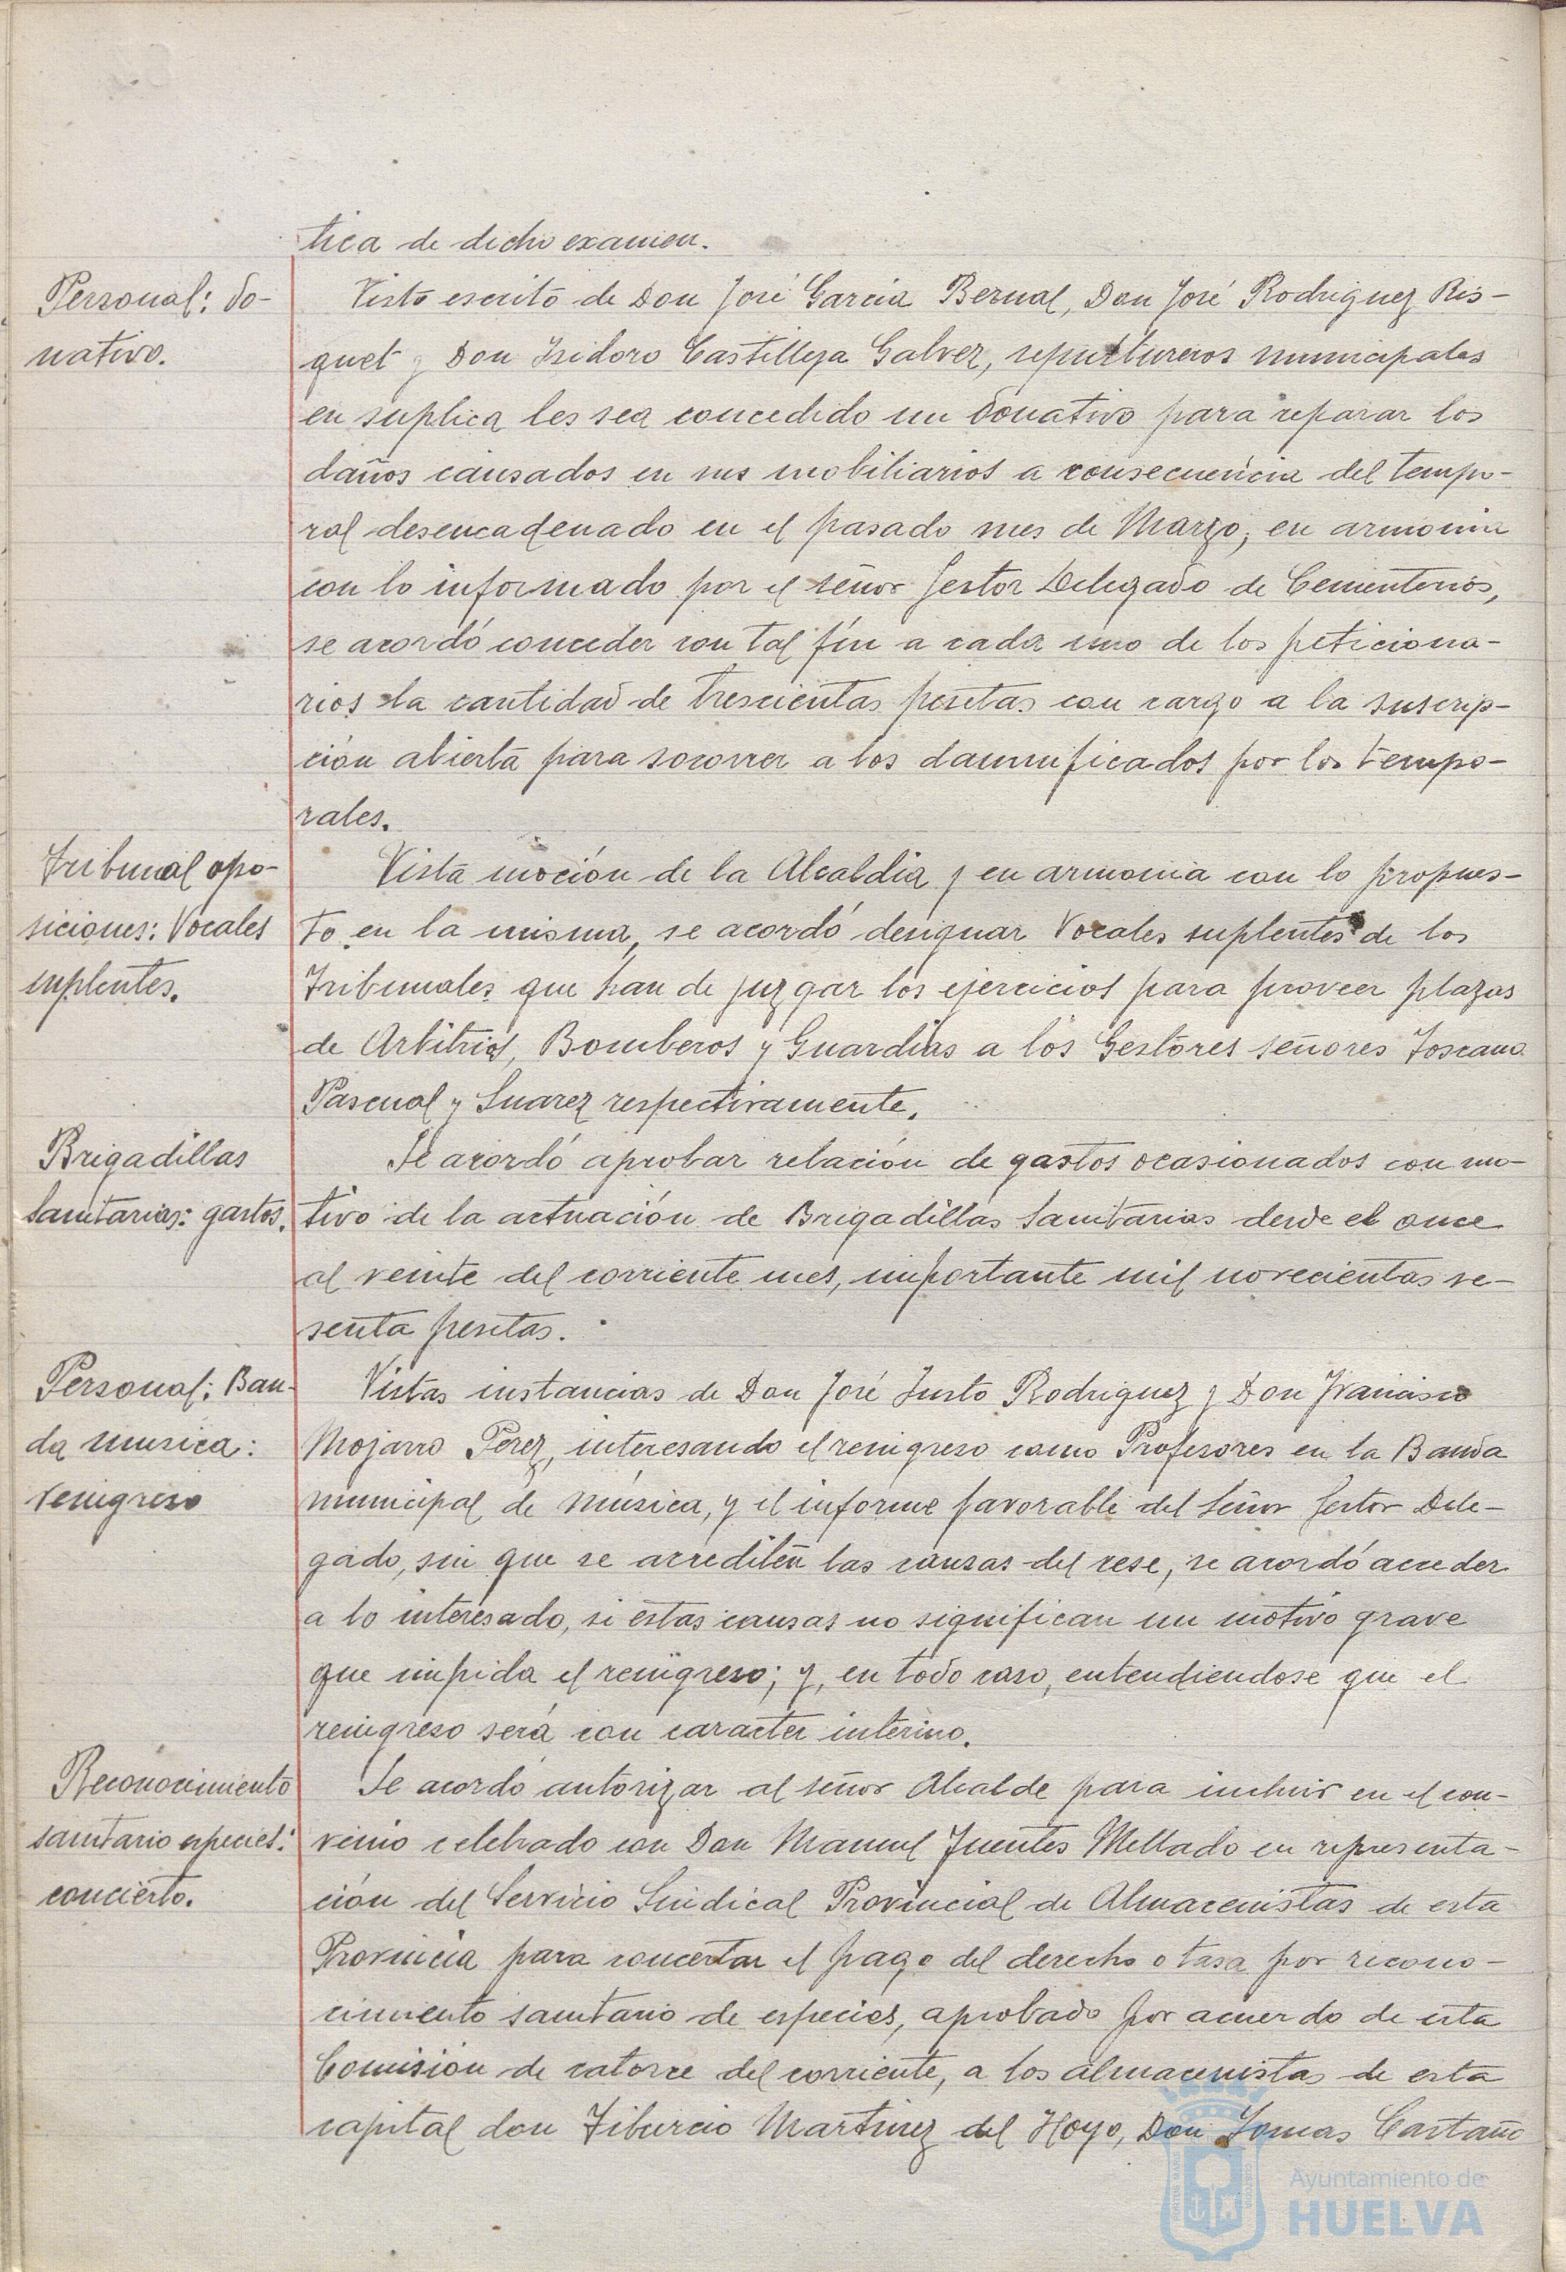 tica de dicho examen.
Personal: do-
nativo.
Visto escrito de Don José García Bernal, Don José Rodriguez Ris-
quet y Don Isidoro Castilleja Galvez, sepultureros municipales
en suplica les sea concedido un donativo para reparar los
daños causados en sus mobiliarios a consecuencia del tempo-
ral desencadenado en el pasado mes de Marzo; en armonia
con lo informado por el señor Gestor Delegado de Cementerios,
se acordó conceder con tal fín a cada uno de los peticiona-
rios la cantidad de trescientas pesetas con cargo a la suscrip-
ción abierta para socorrer a los damnificados por los tempo-
rales.
Tribunal opo-
siciones: Vocales
suplentes.
Vista moción de la Alcaldia y en armonia con lo propues-
to en la misma, se acordó designar Vocales suplentes de los
Tribunales que han de juzgar los ejercicios para proveer plazas
de Arbitrios, Bomberos y Guardias a los Gestores señores Toscano
Pascual y Suarez respectivamente.
Brigadillas
Sanitarias: gastos.
Se acordó aprobar relación de gastos ocasionados con mo-
tivo de la actuación de Brigadillas Sanitarias desde el once
al veinte del corriente mes, importante mil novecientas se-
senta pesetas.
Personal: Ban-
da musica:
reingreso
Vistas instancias de Don José Justo Rodriguez y Don Francisco
Mojarro Perez, interesando el reingreso como Profesores en la Banda
municipal de música, y el informe favorable del Señor Gestor Dele-
gado, sin que se acrediten las causas del cese, se acordó acceder
a lo interesado, si estas causas no significan un motivo grave
que impida el reingreso; y, en todo caso, entendiendose que el
reingreso será con caracter interino.
Reconocimiento
sanitario especies:
concierto.
Se acordó autorizar al señor Alcalde para incluir en el con-
venio celebrado con Don Manuel Fuentes Mellado en representa-
ción del Servicio Sindical Provincial de Almacenistas de esta
Provincia para concertar el pago del derecho o tasa por recono-
cimiento sanitario de especies, aprobado por acuerdo de esta
Comisión de catorce del corriente, a los almacenistas de esta
capital don Tiburcio Martinez del Hoyo, Don Tomas Castaño
Ayuntamiento de
HUELVA